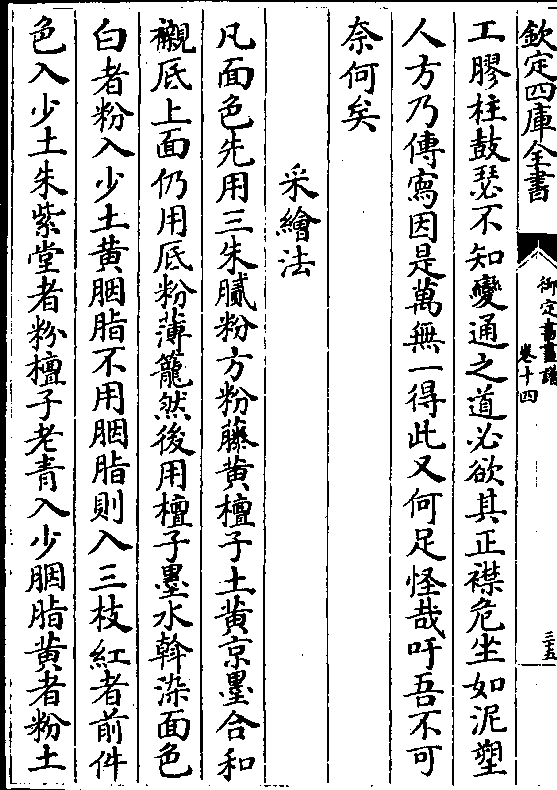 欽定四庫全書
御定書畫譜
卷十四
三五
工膠柱鼓瑟不知變通之道必欲其正襟危坐如泥塑
人方乃傳寫因是萬無一得此又何足怪哉吁吾不可
奈何矣
采繪法
凡面色先用三朱膩粉方粉藤黄檀子土黄京墨合和
襯底上面仍用底粉薄籠然後用檀子墨水斡染面色
白者粉入少土黄胭脂不用胭脂則入三枝紅者前件
色入少土朱紫堂者粉檀子老青入少胭脂黄者粉土